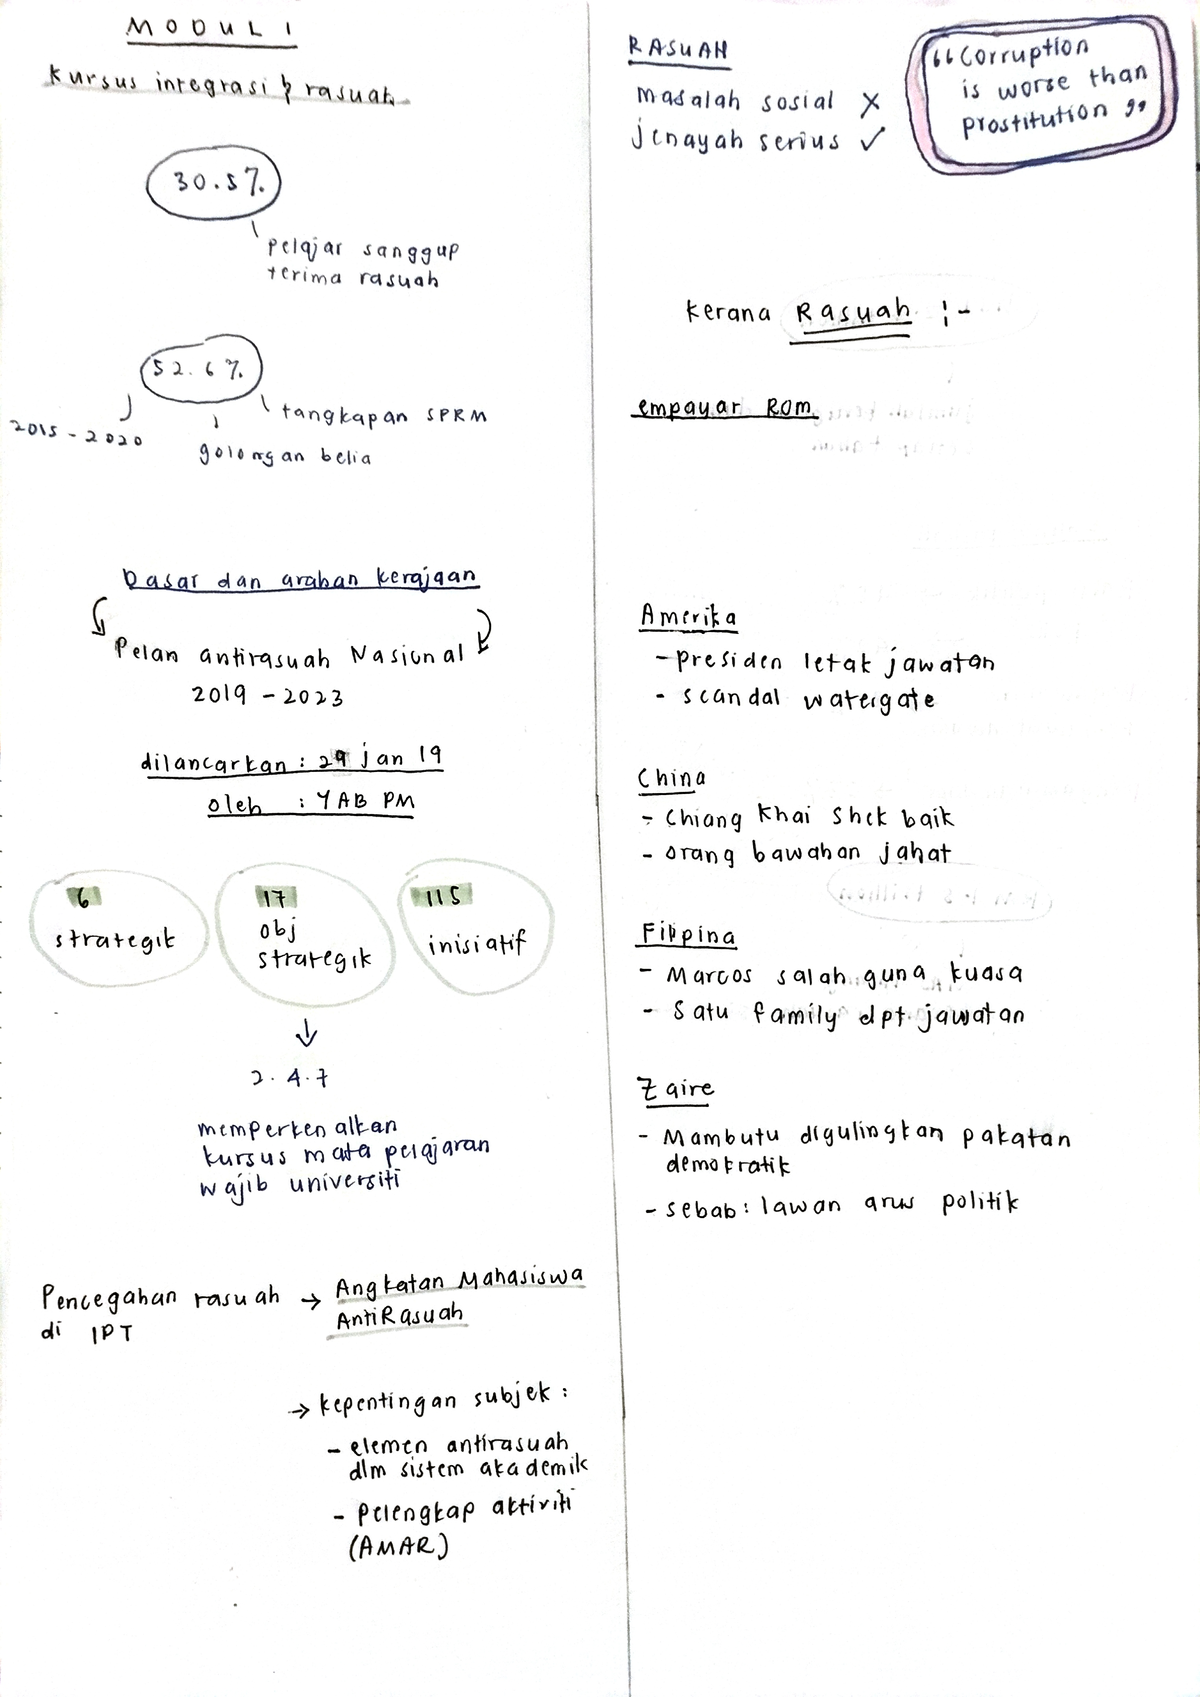 MODUL 1
Kursus integrasi & rasuah
30.5%
pelajar sanggup
terima rasuah
52.6%
2015 - 2020
tangkapan SPRM
golongan belia
Dasar dan arahan kerajaan
Pelan antirasuah Nasional
2019 - 2023
dilancarkan : 29 jan 19
oleh : YAB PM
6
strategik
17
obj
strategik
115
inisiatif
↓
2.4.7
memperkenalkan
kursus mata pelajaran
wajib universiti
Pencegahan rasuah → Angkatan Mahasiswa
di IPT AntiRasuah
→ kepentingan subjek :
- elemen antirasuah
dlm sistem akademik
- Pelengkap aktiviti
(AMAR)
RASUAH
masalah sosial ✗
jenayah serius ✓
“Corruption
is worse than
prostitution”
kerana Rasuah :-
empayar ROM
Amerika
- presiden letak jawatan
- scandal watergate
China
- Chiang Khai Shek baik
- orang bawahan jahat
Filipina
- Marcos salah guna kuasa
- Satu family dpt jawatan
Zaire
- Mambutu digulingkan pakatan
demokratik
- sebab : lawan arus politik